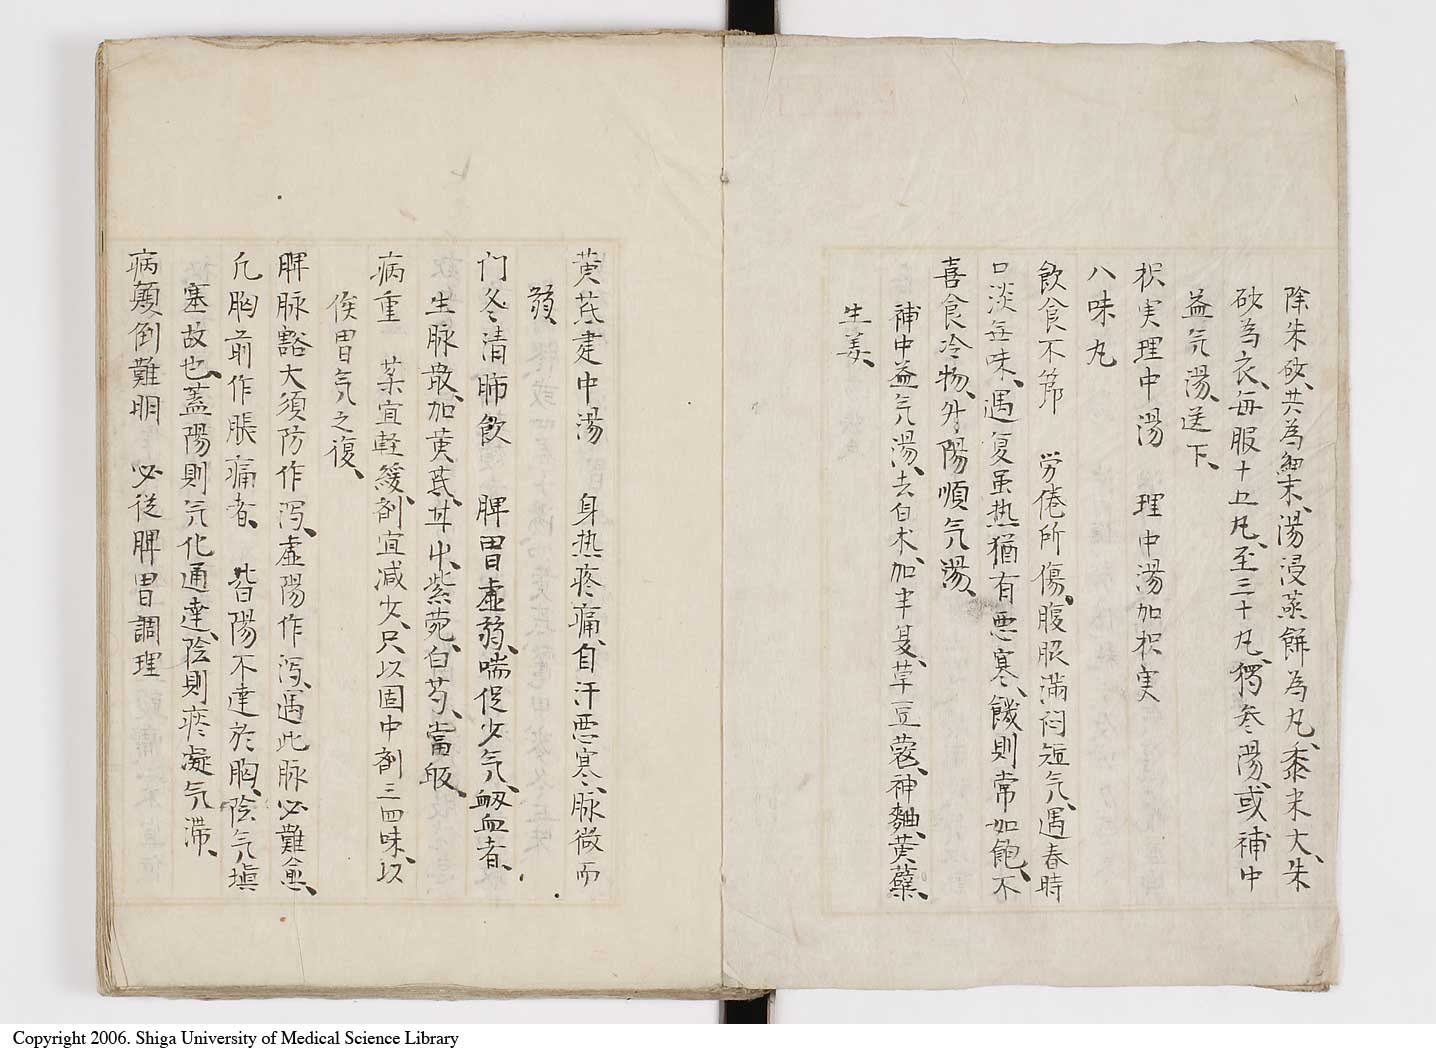 除朱砂、共為細末、湯浸蒸餅為丸、黍米大、朱
砂為衣、毎服十五丸、至三十丸、獨参湯、或補中
益气湯、送下、
枳実理中湯　理中湯加枳実
八味丸
飲食不節　労倦所傷、腹脹満悶短气、遇春時
口淡無味、遇夏虽热猶有悪寒、饑則常如飽、不
喜食冷物、升陽順气湯、
補中益气湯、去白朮、加半夏、草豆蔻、神麯、黄蘗、
生姜、
黄芪建中湯　身热疼痛、自汗悪寒、脉微而
弱
门冬清肺飲　脾胃虚弱、喘促少气、衂血者、
生脉散、加黄芪、甘艸、紫菀、白芍、當皈、
病重　薬宜軽緩、剤宜减少、只以固中剤三四味、以
俟胃气之復、
脾脉豁大須防作泻、虚陽作泻、遇此脉必難愈、
凢胸前作脹痛者、皆陽不達於胸、陰气填
塞故也、蓋陽則气化通達、陰則疼凝气滞、
病顛倒難明　必従脾胃調理
Copyright 2006. Shiga University of Medical Science Library